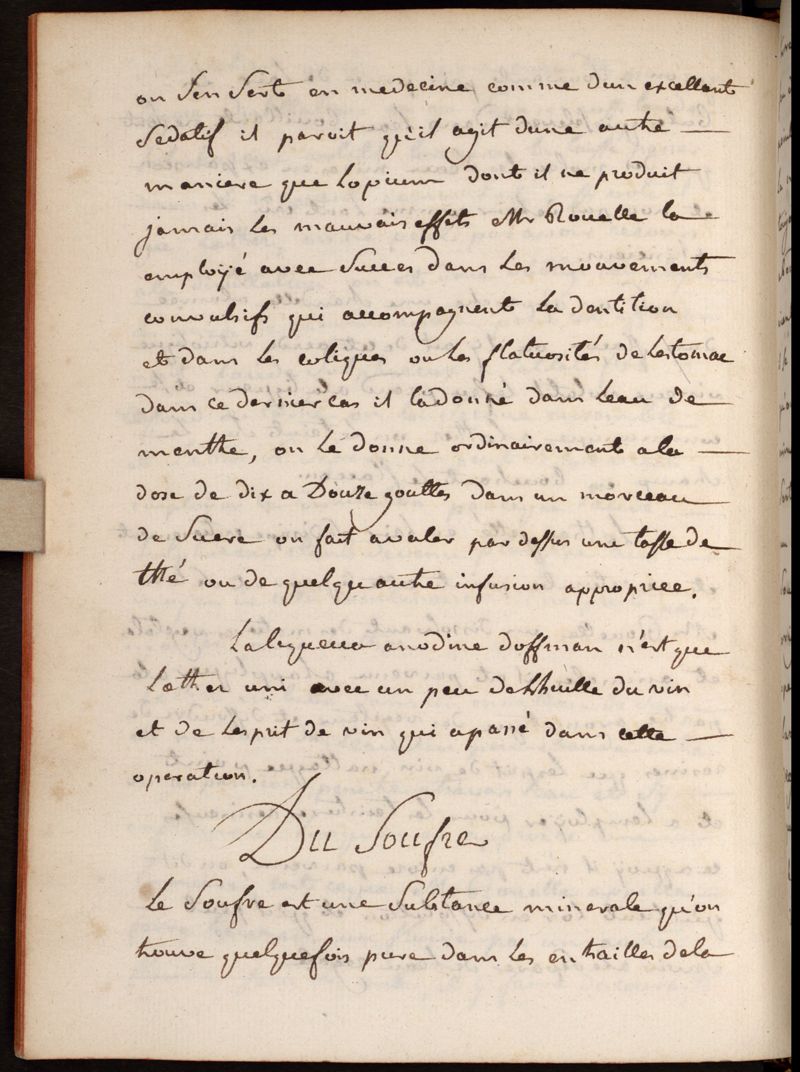 on Sen Sert en medecine comme dun excellant
Sedatif il paroit qu'il agit dune autre
maniere que lopium dont il ne produit
jamais les mauvais effets Mr Rouelle la
employé avec Succes dans les mouvements
convulsifs qui accompagnent la dentition
et dans les coliques ou les flatuosités de lestomac
dans ce dernier cas il la donné dans leau de
menthe, on le donne ordinairement a la
dose de dix a Douze gouttes dans un morceau
de Sucre on fait avaler par dessus une tasse de
thé ou de quelqu autre infusion appropriee.
La liqueur anodine doffman n'est que
Læther uni avec un peu de Lhuille du vin
et de Lesprit de vin qui a passé dans cette
operation.
Du Soufre
Le Soufre est une Substance minerale qu'on
trouve quelquefois pure dans les entrailles de la